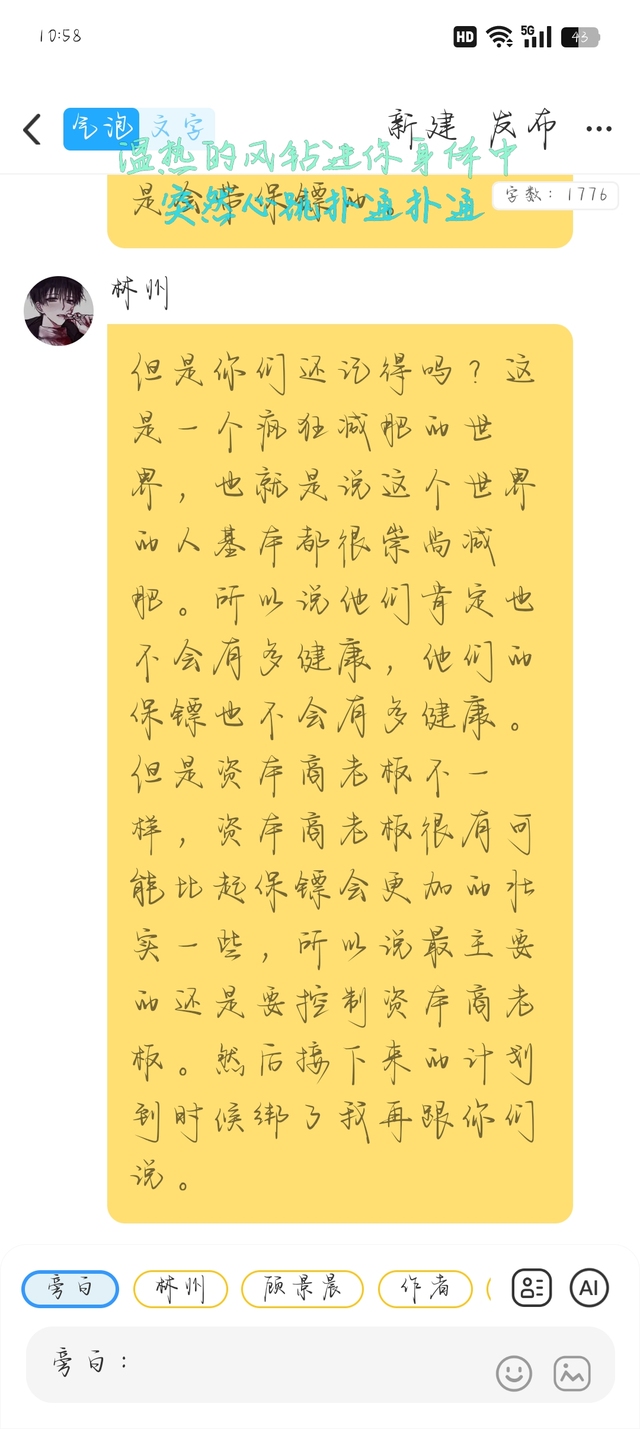 10:58
HD 5G 43
气泡 文字 新建 发布
温热的风钻进你身体中
突然心跳扑通扑通
是会带保镖的。
字数：1776
林州
但是你们还记得吗？这
是一个疯狂减肥的世
界，也就是说这个世界
的人基本都很崇尚减
肥。所以说他们肯定也
不会有多健康，他们的
保镖也不会有多健康。
但是资本商老板不一
样，资本商老板很有可
能比起保镖会更加的壮
实一些，所以说最主要
的还是要控制资本商老
板。然后接下来的计划
到时候绑了我再跟你们
说。
旁白 林州 顾景晨 作者 AI
旁白：